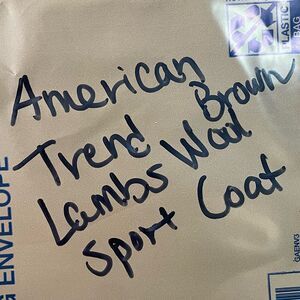 American
Trend Brown
Lambs Wool
Sport Coat
PLASTIC
BAG
G ENVELOPE
GAENV3